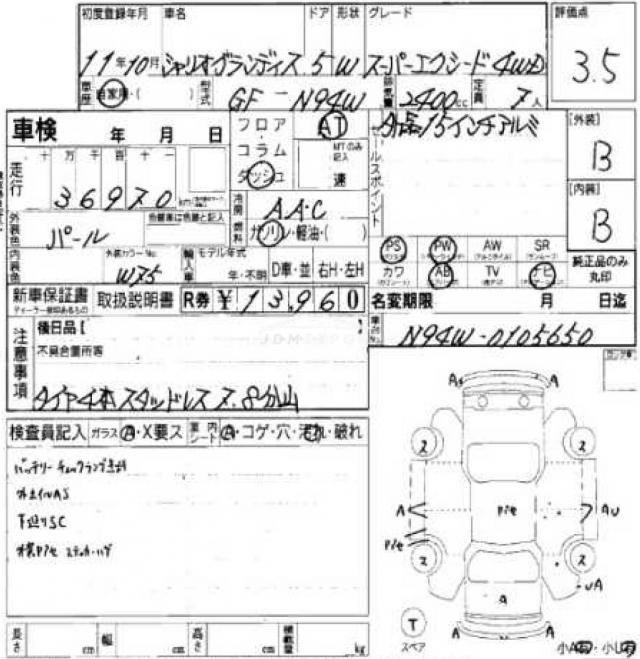 初度登録年月 車名 ドア 形状 グレード 評価点
11年10月 シャリオグランディス 5 W スーパーエクシード4WD 3.5
車歴 自家用・( ) 型式 GF-N94W 排気量 2400cc 定員 7人
車検 年 月 日
フロア AT
コラム MTのみ記入
ダッシュ 速
セールスポイント
外品15インチアルミ
[外装]
B
[内装]
B
走行 十 万 千 百 十 一
36970 km
冷房 AAC
燃料 ガソリン・軽油・( )
外装色 パール 色替車は元色と記入
内装色 外装カラーNo. W75
輸入車 モデル年式 年・不明 D車・並 右H・左H
PS PW AW SR
カワ AB TV ナビ
純正品のみ丸印
新車保証書 取扱説明書 R券 ¥13,960
ディーラー捺印あるもの
名変期限 月 日迄
車台No. N94W-0105650
注意事項
後日品[
不具合箇所等
タイヤ4本スタッドレス ス.8分山
検査員記入 ガラス A・X要ス 内張シート A・コゲ・穴・汚れ・破れ
バッテリーチェックランプ点灯
外主イルAS
下廻りSC
A A
2 2
A P/e AU
P/e
2 2
A UA
T
スペア
A A
長さ cm 幅 cm 高さ cm 積載量 kg
小A有・小U有